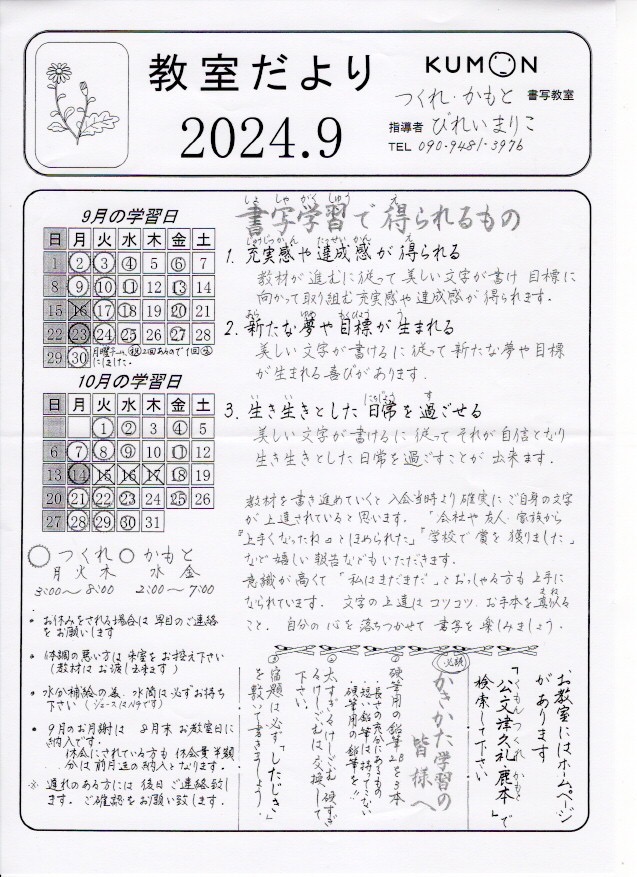 教室だより
2024.9
KUMON
つくれ・かもと 書写教室
指導者 びれいまりこ
TEL 090-9481-3976
9月の学習日
日 月 火 水 木 金 土
1 2 3 4 5 6 7
8 9 10 11 12 13 14
15 16 17 18 19 20 21
22 23 24 25 26 27 28
29 30
10月の学習日
日 月 火 水 木 金 土
1 2 3 4 5
6 7 8 9 10 11 12
13 14 15 16 17 18 19
20 21 22 23 24 25 26
27 28 29 30 31
○つくれ ○かもと
月 火 木 水 金
3:00〜8:00 2:00〜7:00
・お休みをされる場合は 早目のご連絡
をお願いします
・体調の悪い方は 来室をお控え下さい
(教材は お渡し出来ます)
・水分補給の為、水筒は必ずお持ち
下さい (ジュースはNGです)
・9月のお月謝は 8月末 お教室日に
納入です。
休会にされている方も 休会費 半額
分は前月迄の納入となります。
※ 遅れのある方には 後日 ご連絡致し
ます。ご確認をお願い致します。
書写学習で得られるもの
しょしゃがくしゅう え
1. 充実感や達成感が得られる
じゅうじつかん たっせいかん え
教材が進むに従って美しい文字が書け 目標に
向かって取り組む充実感や達成感が得られます.
2. 新たな夢や目標が生まれる
あら ゆめ もくひょう う
美しい文字が書けるに従って新たな夢や目標
が生まれる喜びがあります.
3. 生き生きとした日常を過ごせる
い い にちじょう す
美しい文字が書けるに従って それが自信となり
生き生きとした日常を過ごすことが出来ます.
教材を書き進めていくと入会当時より確実にご自身の文字
が上達されていると思います.「会社や友人・家族から
『上手くなったね』とほめられた」「学校で賞を獲りました」
など嬉しい報告などもいただきます.
意識が高くて「私はまだまだ」とおっしゃる方も上手に
なられています. 文字の上達はコツコツ お手本を真似る
まね
こと. 自分の心を落ちつかせて 書写を楽しみましょう.
お教室にはホームページ
があります
「くもん つくれ かもと
公文 津久礼 鹿本」で
検索して下さい
必読
かきかた学習の
皆様へ
①硬筆用の鉛筆2Bを3本
・長さの充分にあるもの
・短い鉛筆は持ってこない
・硬筆用の鉛筆を!!
②太すぎるけしごむ 硬すぎ
るけしごむは交換して
下さい.
③宿題は必ず「したじき」
を敷いて書きましょう.